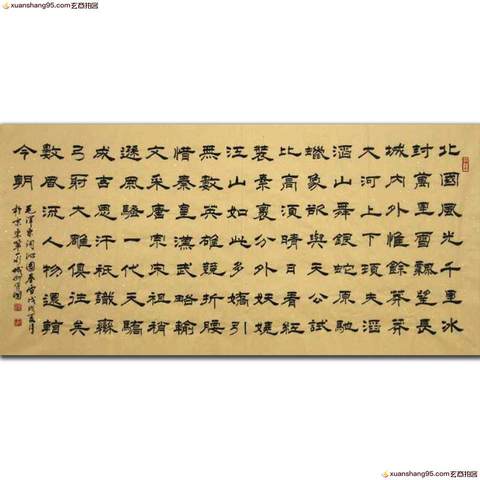 xuanshang95.com玄商拍图
北國風光千里冰
封萬里雪飄望長
城内外惟餘莽莽
大河上下頓失滔
滔山舞銀蛇原馳
蠟象欲與天公試
比高須晴日看紅
裝素裹分外妖嬈
江山如此多嬌引
無數英雄競折腰
惜秦皇漢武略輸
文采唐宗宋祖稍
遜風騷一代天驕
成吉思汗祇識彎
弓射大雕俱往矣
數風流人物還看
今朝
毛澤東詞沁園春雪戊戌夏月
xuanshang95.com玄商拍图